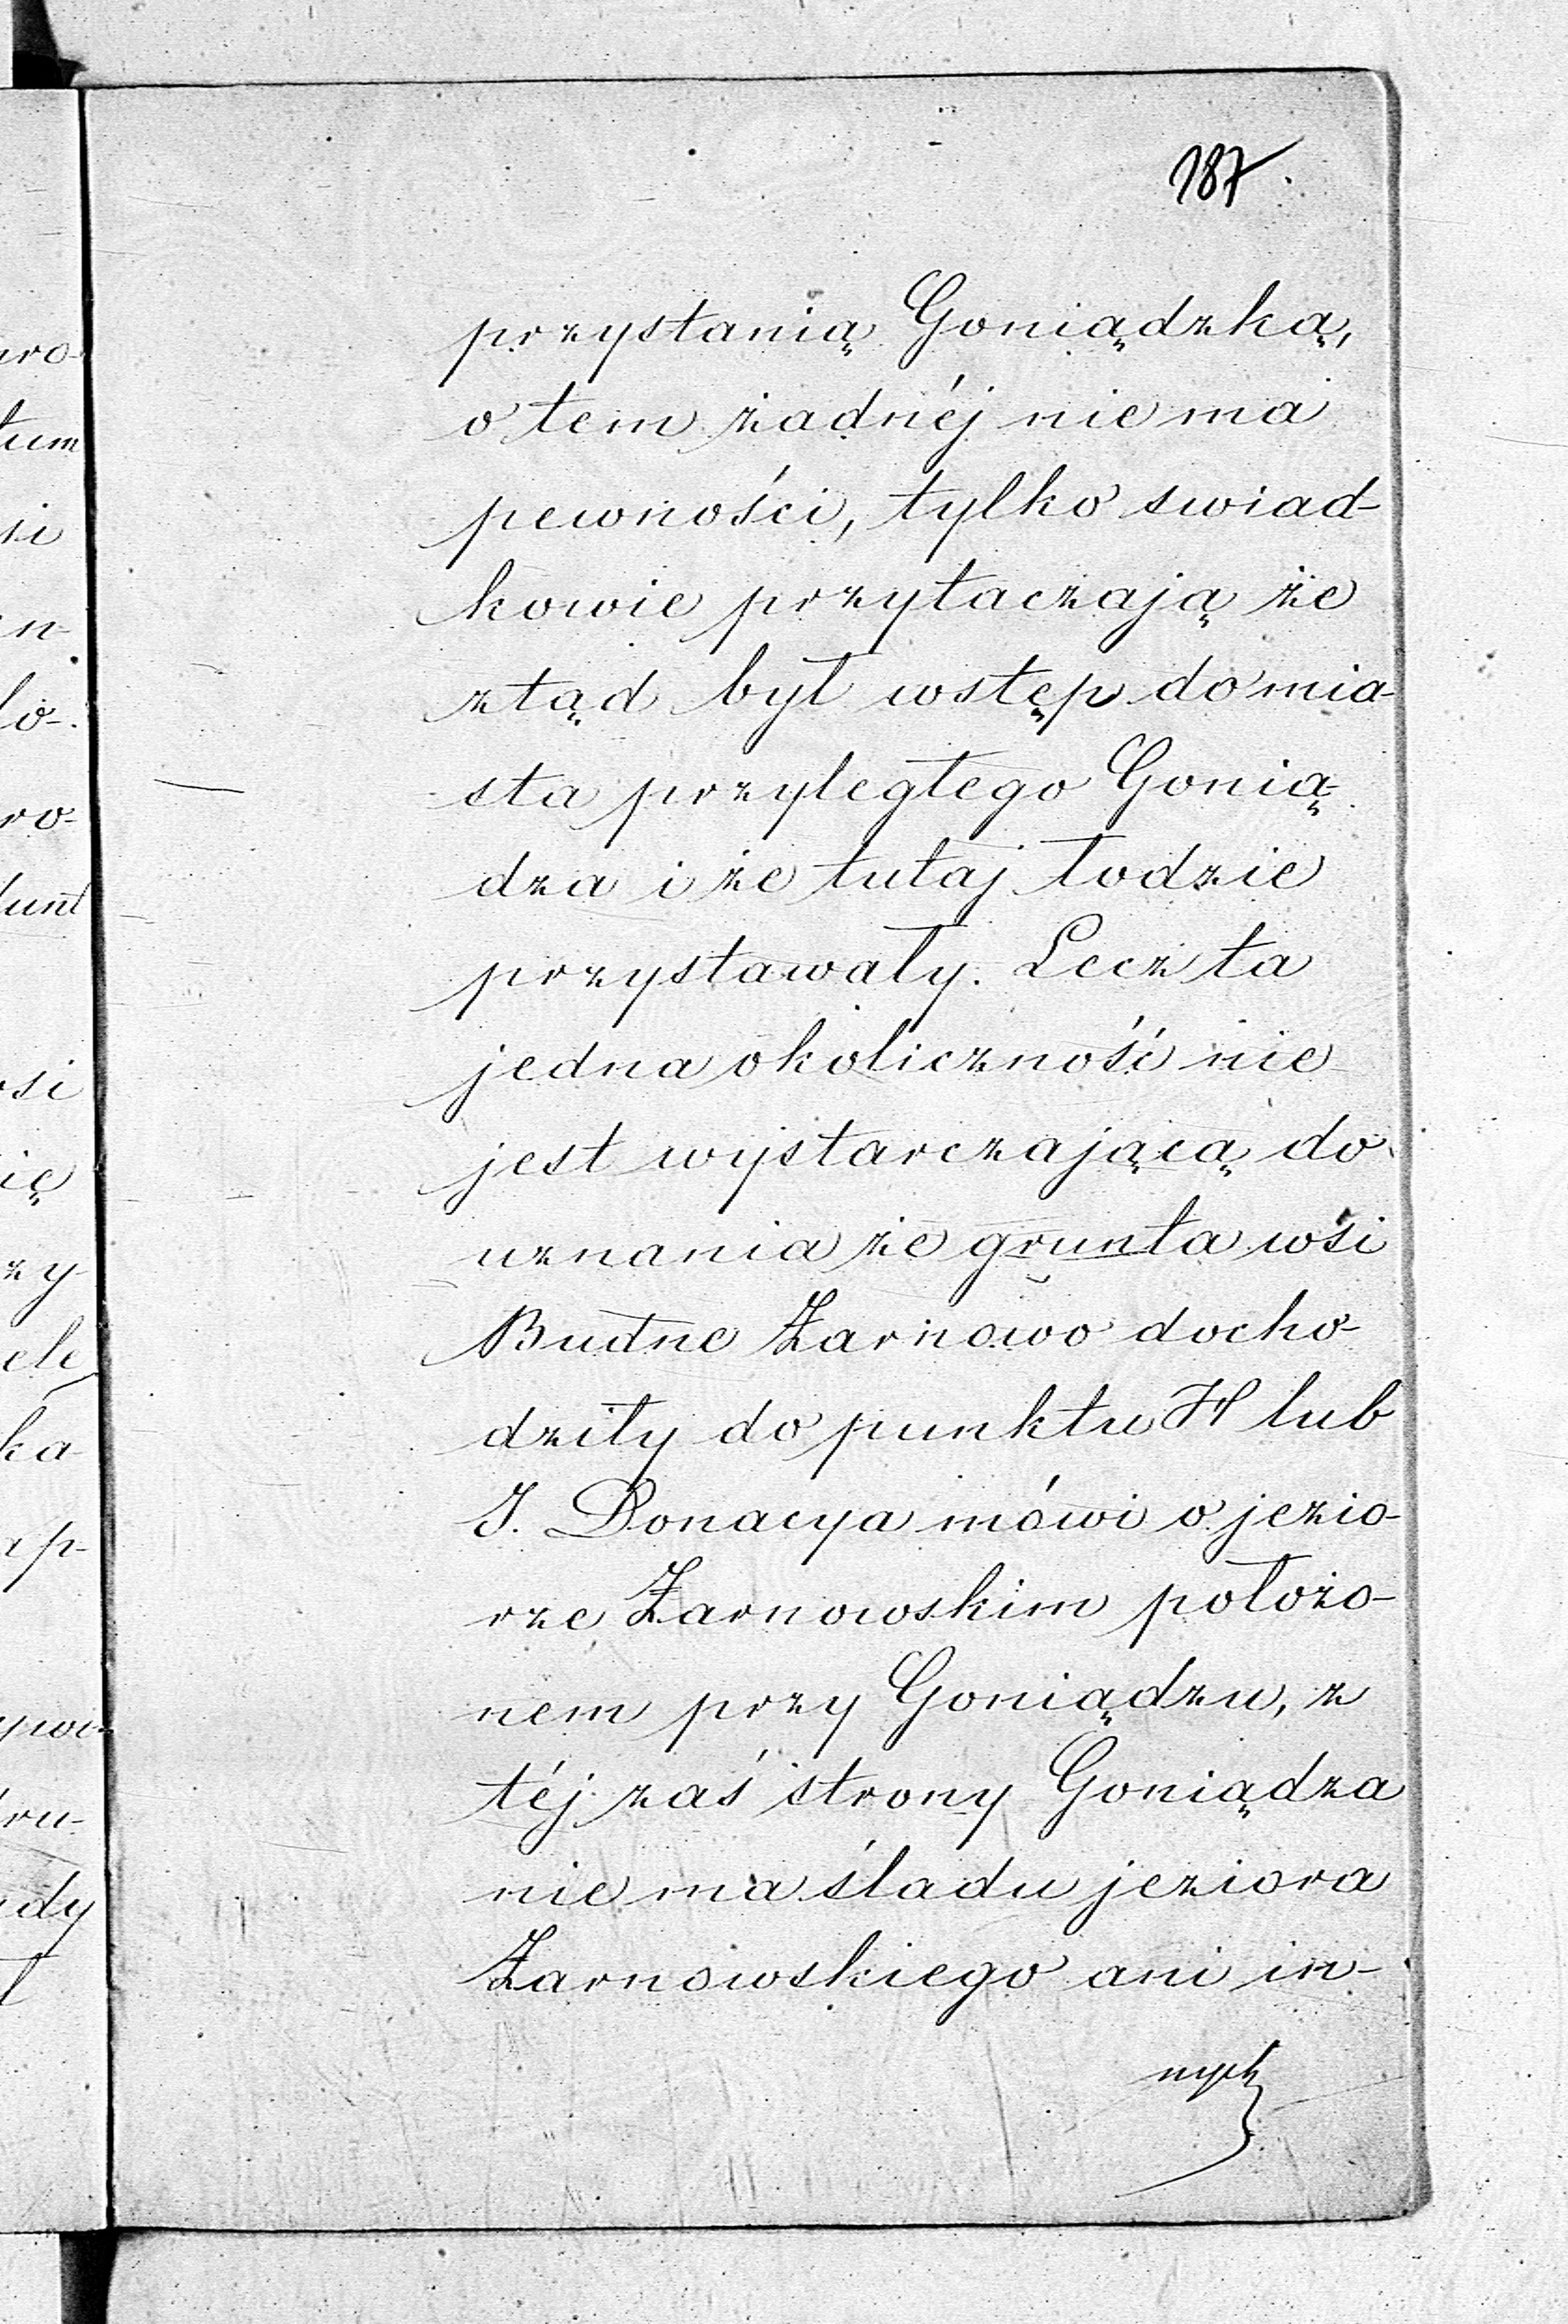 187
przystanią Goniądzką,
o tem żadnéj nie ma
pewności, tylko swiad-
kowie przytaczają że
ztąd był wstęp do mia-
sta przyległego Gonią-
dza i że tutaj łodzie
przystawały. Lecz ta
jedna okoliczność nie
jest wystarczającą do
uznania że grunta wsi
Budne Żarnowo docho-
dziły do punktu H lub
J. Donacya mówi o jezio-
rze Żarnowskim położo-
nem przy Goniądzu, z
téj zaś strony Goniądza
nie ma śladu jeziora
Żarnowskiego ani in-
nych